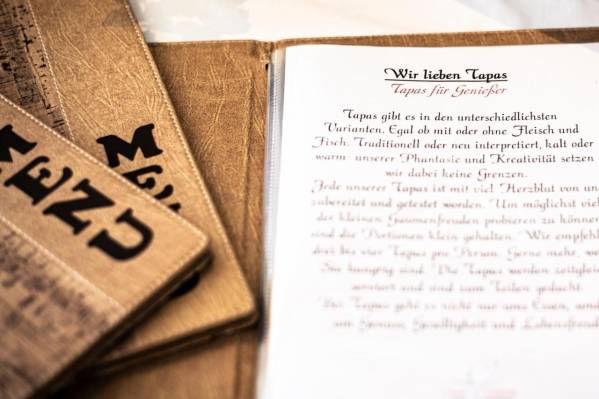 MENU
ME
Wir lieben Tapas
Tapas für Genießer
Tapas gibt es in den unterschiedlichsten
Varianten. Egal ob mit oder ohne Fleisch und
Fisch. Traditionell oder neu interpretiert, kalt oder
warm- unserer Phantasie und Kreativität setzen
wir dabei keine Grenzen.
Jede unserer Tapas ist mit viel Herzblut von un
zubereitet und getestet worden. Um möglichst viel
der kleinen Gaumenfreuden probieren zu können
sind die Portionen klein gehalten. Wir empfehl
drei bis vier Tapas pro Person. Gerne mehr, we
Sie hungrig sind. Die Tapas werden zeitgleich
serviert und sind zum Teilen gedacht.
Bei Tapas geht es nicht nur ums Essen, sond
um Genuss, Geselligkeit und Lebensfreud